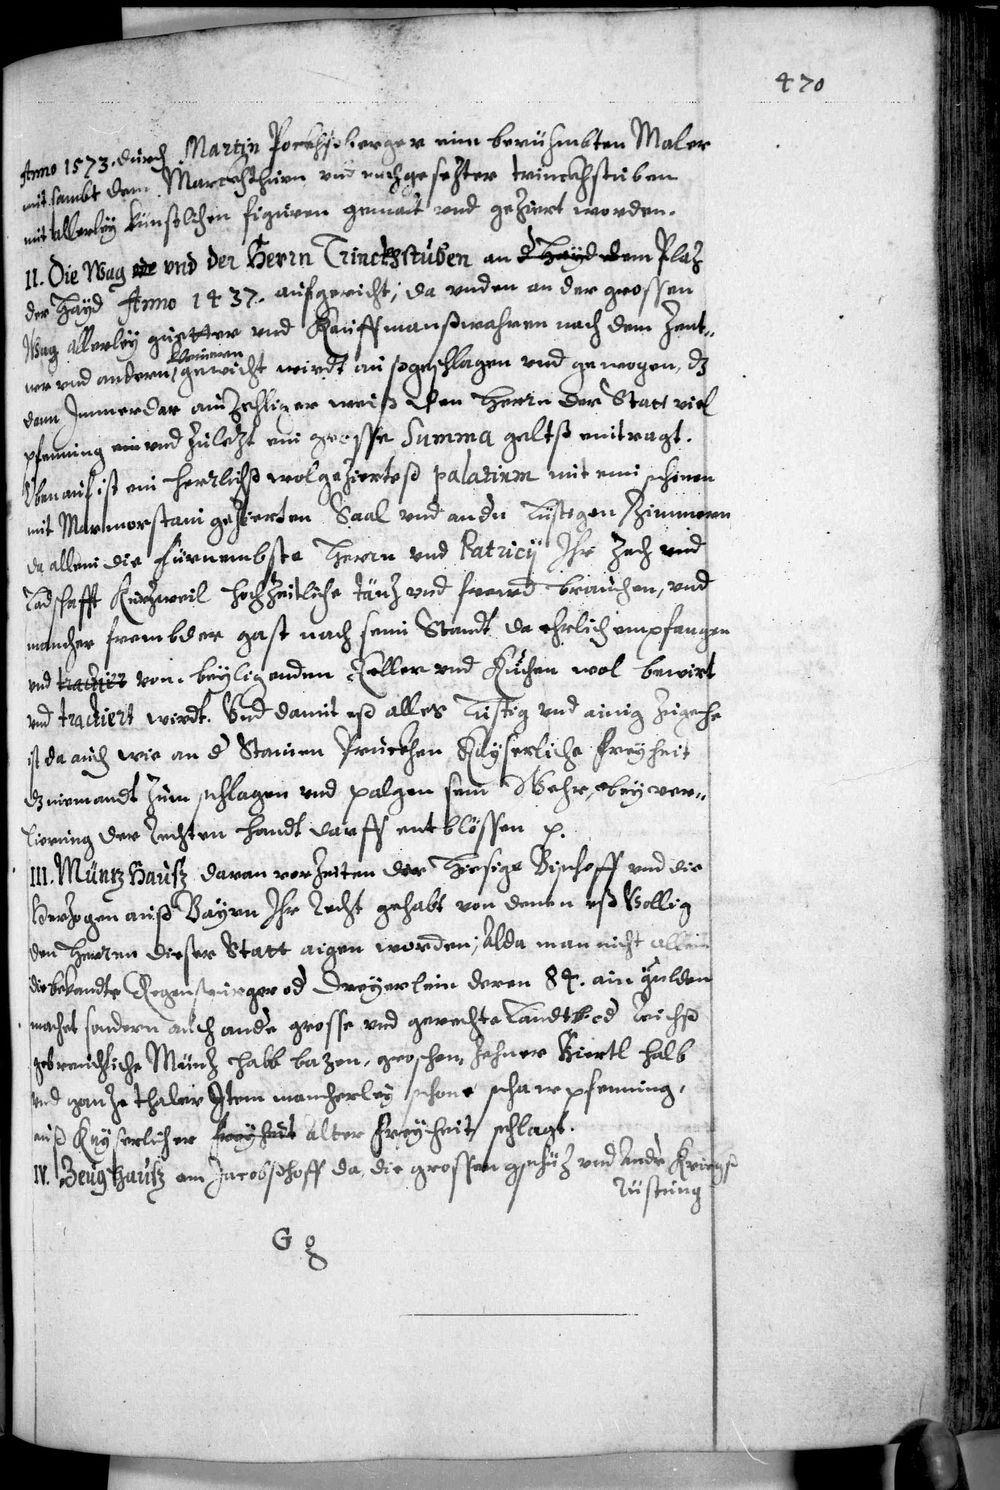 470
Anno 1573. durch Martin Pockhsberger ein berühmbten Maler
mit sambt dem Marckhthurn vnd nachgesezter trinckhstuben
mit allerley künstlichen figuren gemalt vnd geziert worden.
II. Die Wag vnd der Herrn Trinckhstuben an d Hayd dem Plaz
der Hayd Anno 1437. aufgericht, da vnden an der grossen
Wag allerley guetter vnd Kauffmanßwahren nach dem Zent„
ner vnd andern kleinern gewicht wirdt außgeschlagen vnd gewogen, dz
dem Jmmerdar einzelliger weiß den Herrn der Statt viel
pfenning ein vnd zulezt ein grosse Summa geltß eintragt.
Oben auf ist ein herrlichß wolgeziertes palatium mit eim schönen
mit Marmorstain gezierten Saal vnd andn lustigen Zimmern
da allein die fürnembste Herrn vnd Patricij Jhr Zech vnd
Ladschafft Kurzweil hochzeitliche tänz vnd freud brauchen, vnd
mancher frembder gast nach seim Standt da ehrlich empfangen
vnd tractiert von beyligenden Keller vnd Kuchen wol bewirt
vnd tractiert wirdt. Vnd damit eß alles lustig vnd ainig zugehe
ist da auch wie an d Stainen Pruckhen Kayserliche freyheit
dz niemandt zum schlagen vnd palgen sein Wehr, bey ver„
lierung der rechten handt darff entblössen p.
III. Müntz Hauß daran vor Zeiten der hiesige Bischoff vnd die
Herzogen auß Bayrn Jhr recht gehabt von denen eß Vollig
den Herrn dieser Statt aigen worden, Alda man nicht allein
die bekandte Regenspurger od Dreyerlein deren 84. ain gulden
machet sondern auch andre grosse vnd gerechte Landt od Reichß
gebreuchliche Müntz halb bazen, groschen, zehner Viertl halb
vnd ganze thaler Jtem mancherley schöne schawpfenning,
auß Kayserlicher freyheit alter freyheit schlagt.
IV. Zeug hauß am Jacobßhoff da die grossen gschüz vnd Andre Kriegß
rüstung
G g